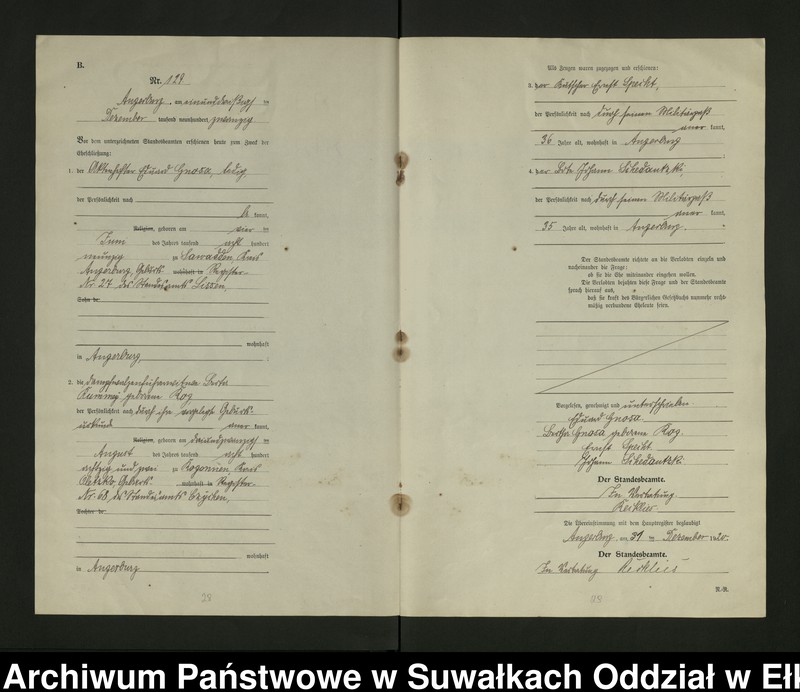 B.
Nr. 129
Angerburg, am einunddreißigsten
Dezember tausend neunhundert zwanzig
Vor dem unterzeichneten Standesbeamten erschienen heute zum Zweck der
Eheschließung:
1. der Eduard Gnosa, ledig
der Persönlichkeit nach
be kannt,
Religion, geboren am vier ten
Juni des Jahres tausend acht hundert
neunzig zu Sawadden, Kreis
Angerburg, Geburts- wohnhaft in Register-
Nr 27 des Standesamts Lissen,
Sohn de
wohnhaft
in Angerburg ;
2. die Berta
geborene Rog
der Persönlichkeit nach durch ihre vorgelegte Geburts-
urkunde aner kannt,
Religion, geboren am dreiundzwanzigsten
August des Jahres tausend acht hundert
achtzig und zwei zu Rogonnen, Kreis
Oletzko, Geburts- wohnhaft in Register-
Nr. 68, des Standesamts Czychen,
Tochter de
wohnhaft
in Angerburg
28
Als Zeugen waren zugezogen und erschienen:
3. der Kutscher Ernst Speikt,
der Persönlichkeit nach durch seinen Militärpaß
aner kannt,
36 Jahre alt, wohnhaft in Angerburg
;
4. der Johann Schedautzki,
der Persönlichkeit nach durch seinen Militärpaß
aner kannt,
35 Jahre alt, wohnhaft in Angerburg.
Der Standesbeamte richtete an die Verlobten einzeln und
nacheinander die Frage:
ob sie die Ehe miteinander eingehen wollen.
Die Verlobten bejahten diese Frage und der Standesbeamte
sprach hierauf aus,
daß sie kraft des Bürgerlichen Gesetzbuchs nunmehr recht-
mäßig verbundene Eheleute seien.
Vorgelesen, genehmigt und unterschrieben
Eduard Gnosa
Bertha Gnosa geborene Rog.
Ernst Speikt.
Johann Schedautzki
Der Standesbeamte.
In Vertretung
Die Übereinstimmung mit dem Hauptregister beglaubigt
Angerburg, am 31 ten Dezember 1920.
Der Standesbeamte.
In Vertretung
N.-R.
28
Archiwum Państwowe w Suwałkach Oddział w Ełk